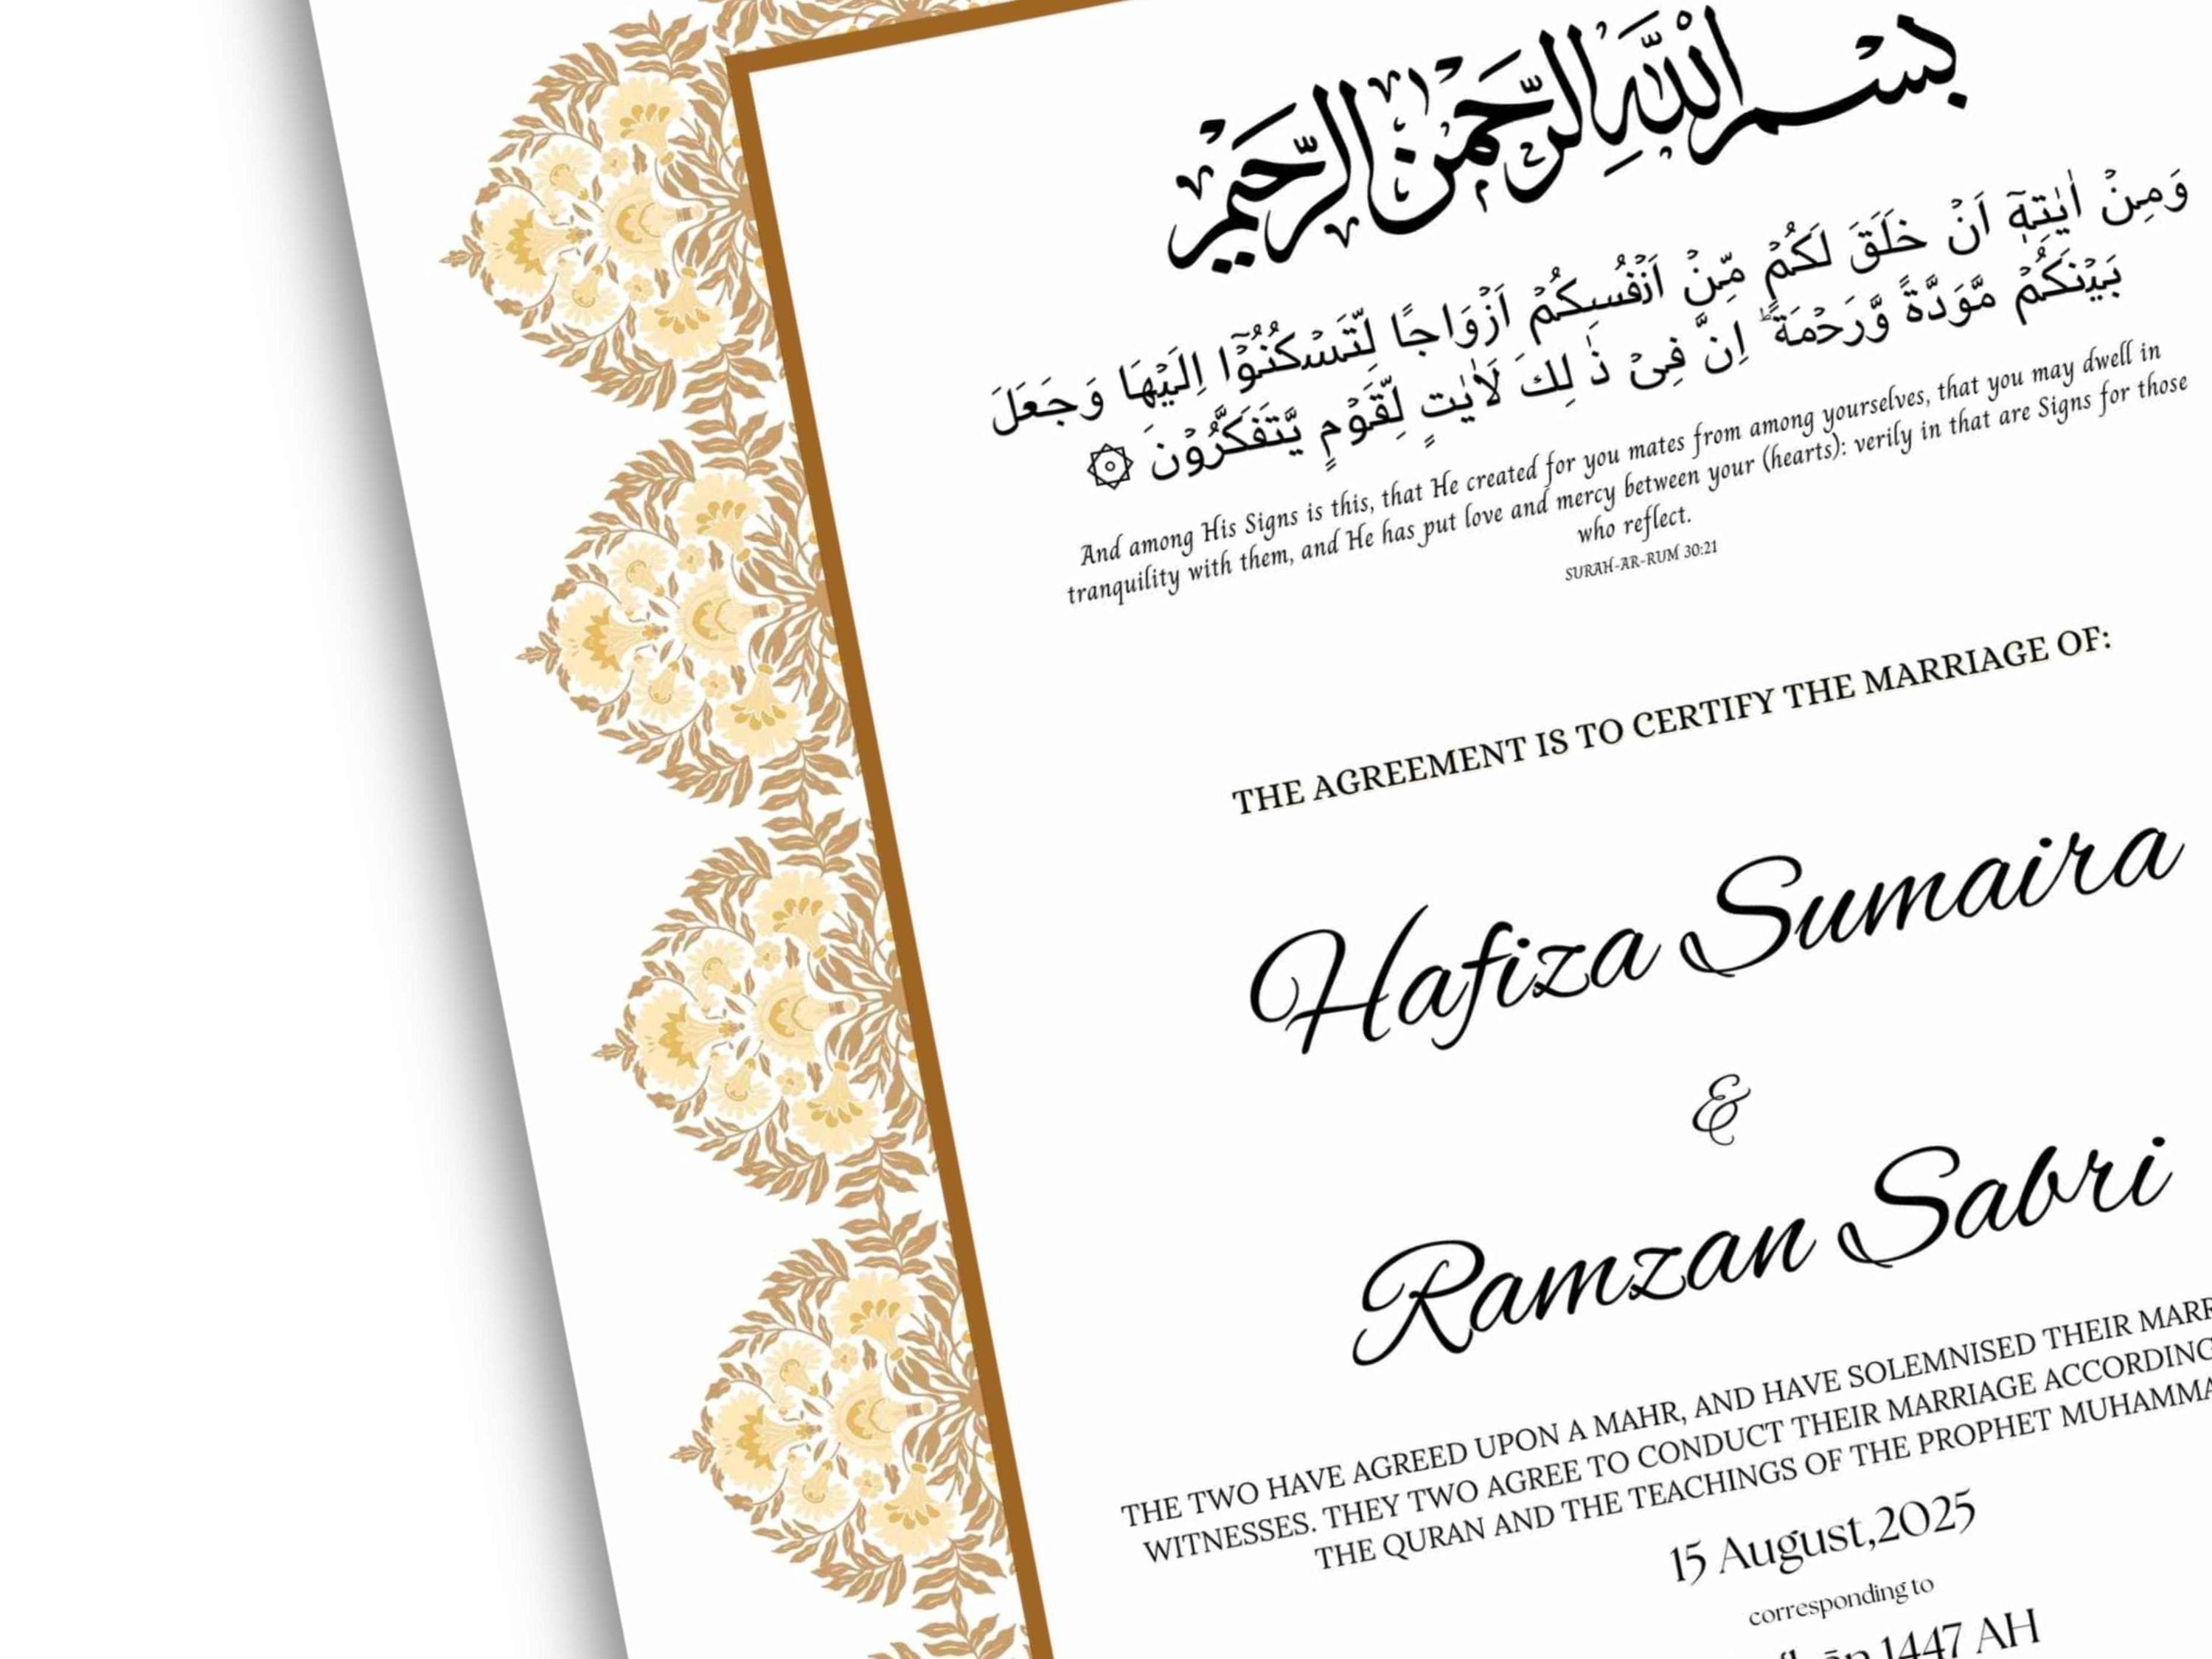 بِسْمِ اللَّهِ الرَّحْمَنِ الرَّحِيمِ
وَمِنْ اٰيٰتِهٖۤ اَنْ خَلَقَ لَكُمْ مِّنْ اَنْفُسِكُمْ اَزْوَاجًا لِّتَسْكُنُوْۤا اِلَيْهَا وَجَعَلَ
بَيْنَكُمْ مَّوَدَّةً وَّرَحْمَةً ؕ اِنَّ فِىْ ذٰ لِكَ لَاٰيٰتٍ لِّقَوْمٍ يَّتَفَكَّرُوْنَ ۞
And among His Signs is this, that He created for you mates from among yourselves, that you may dwell in
tranquility with them, and He has put love and mercy between your (hearts): verily in that are Signs for those
who reflect.
SURAH-AR-RUM 30:21
THE AGREEMENT IS TO CERTIFY THE MARRIAGE OF:
Hafiza Sumaira
&
Ramzan Sabri
THE TWO HAVE AGREED UPON A MAHR, AND HAVE SOLEMNISED THEIR
WITNESSES. THEY TWO AGREE TO CONDUCT THEIR MARRIAGE ACCORDING
THE QURAN AND THE TEACHINGS OF THE PROPHET
15 August,2025
corresponding to
1447 AH